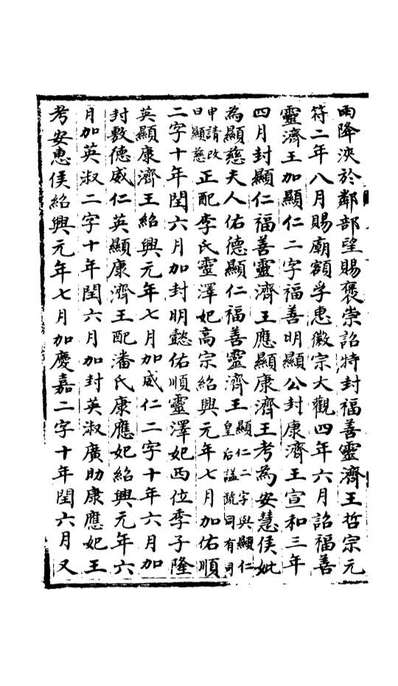 雨降浹於鄰部望賜褒崇詔特封福善靈濟王哲宗元
符二年八月賜廟額孚惠徽宗大觀四年六月詔福善
靈濟王加顯仁二字福善明顯公封康濟王宣和三年
四月封顯仁福善靈濟王應顯康濟王考為安慧侯妣
為顯慈夫人佑德顯仁福善靈濟王顯仁二字與顯仁
皇后謚號同有司
申請改
曰顯慈正配李氏靈澤妃高宗紹興元年七月加佑順
二字十年閏六月加封明懿佑順靈澤妃西位季子隆
英顯康濟王紹興元年七月加威仁二字十年六月加
封敷德威仁英顯康濟王配潘氏康應妃紹興元年六
月加英淑二字十年閏六月加封英淑廣助康應妃王
考安惠侯紹興元年七月加慶嘉二字十年閏六月又